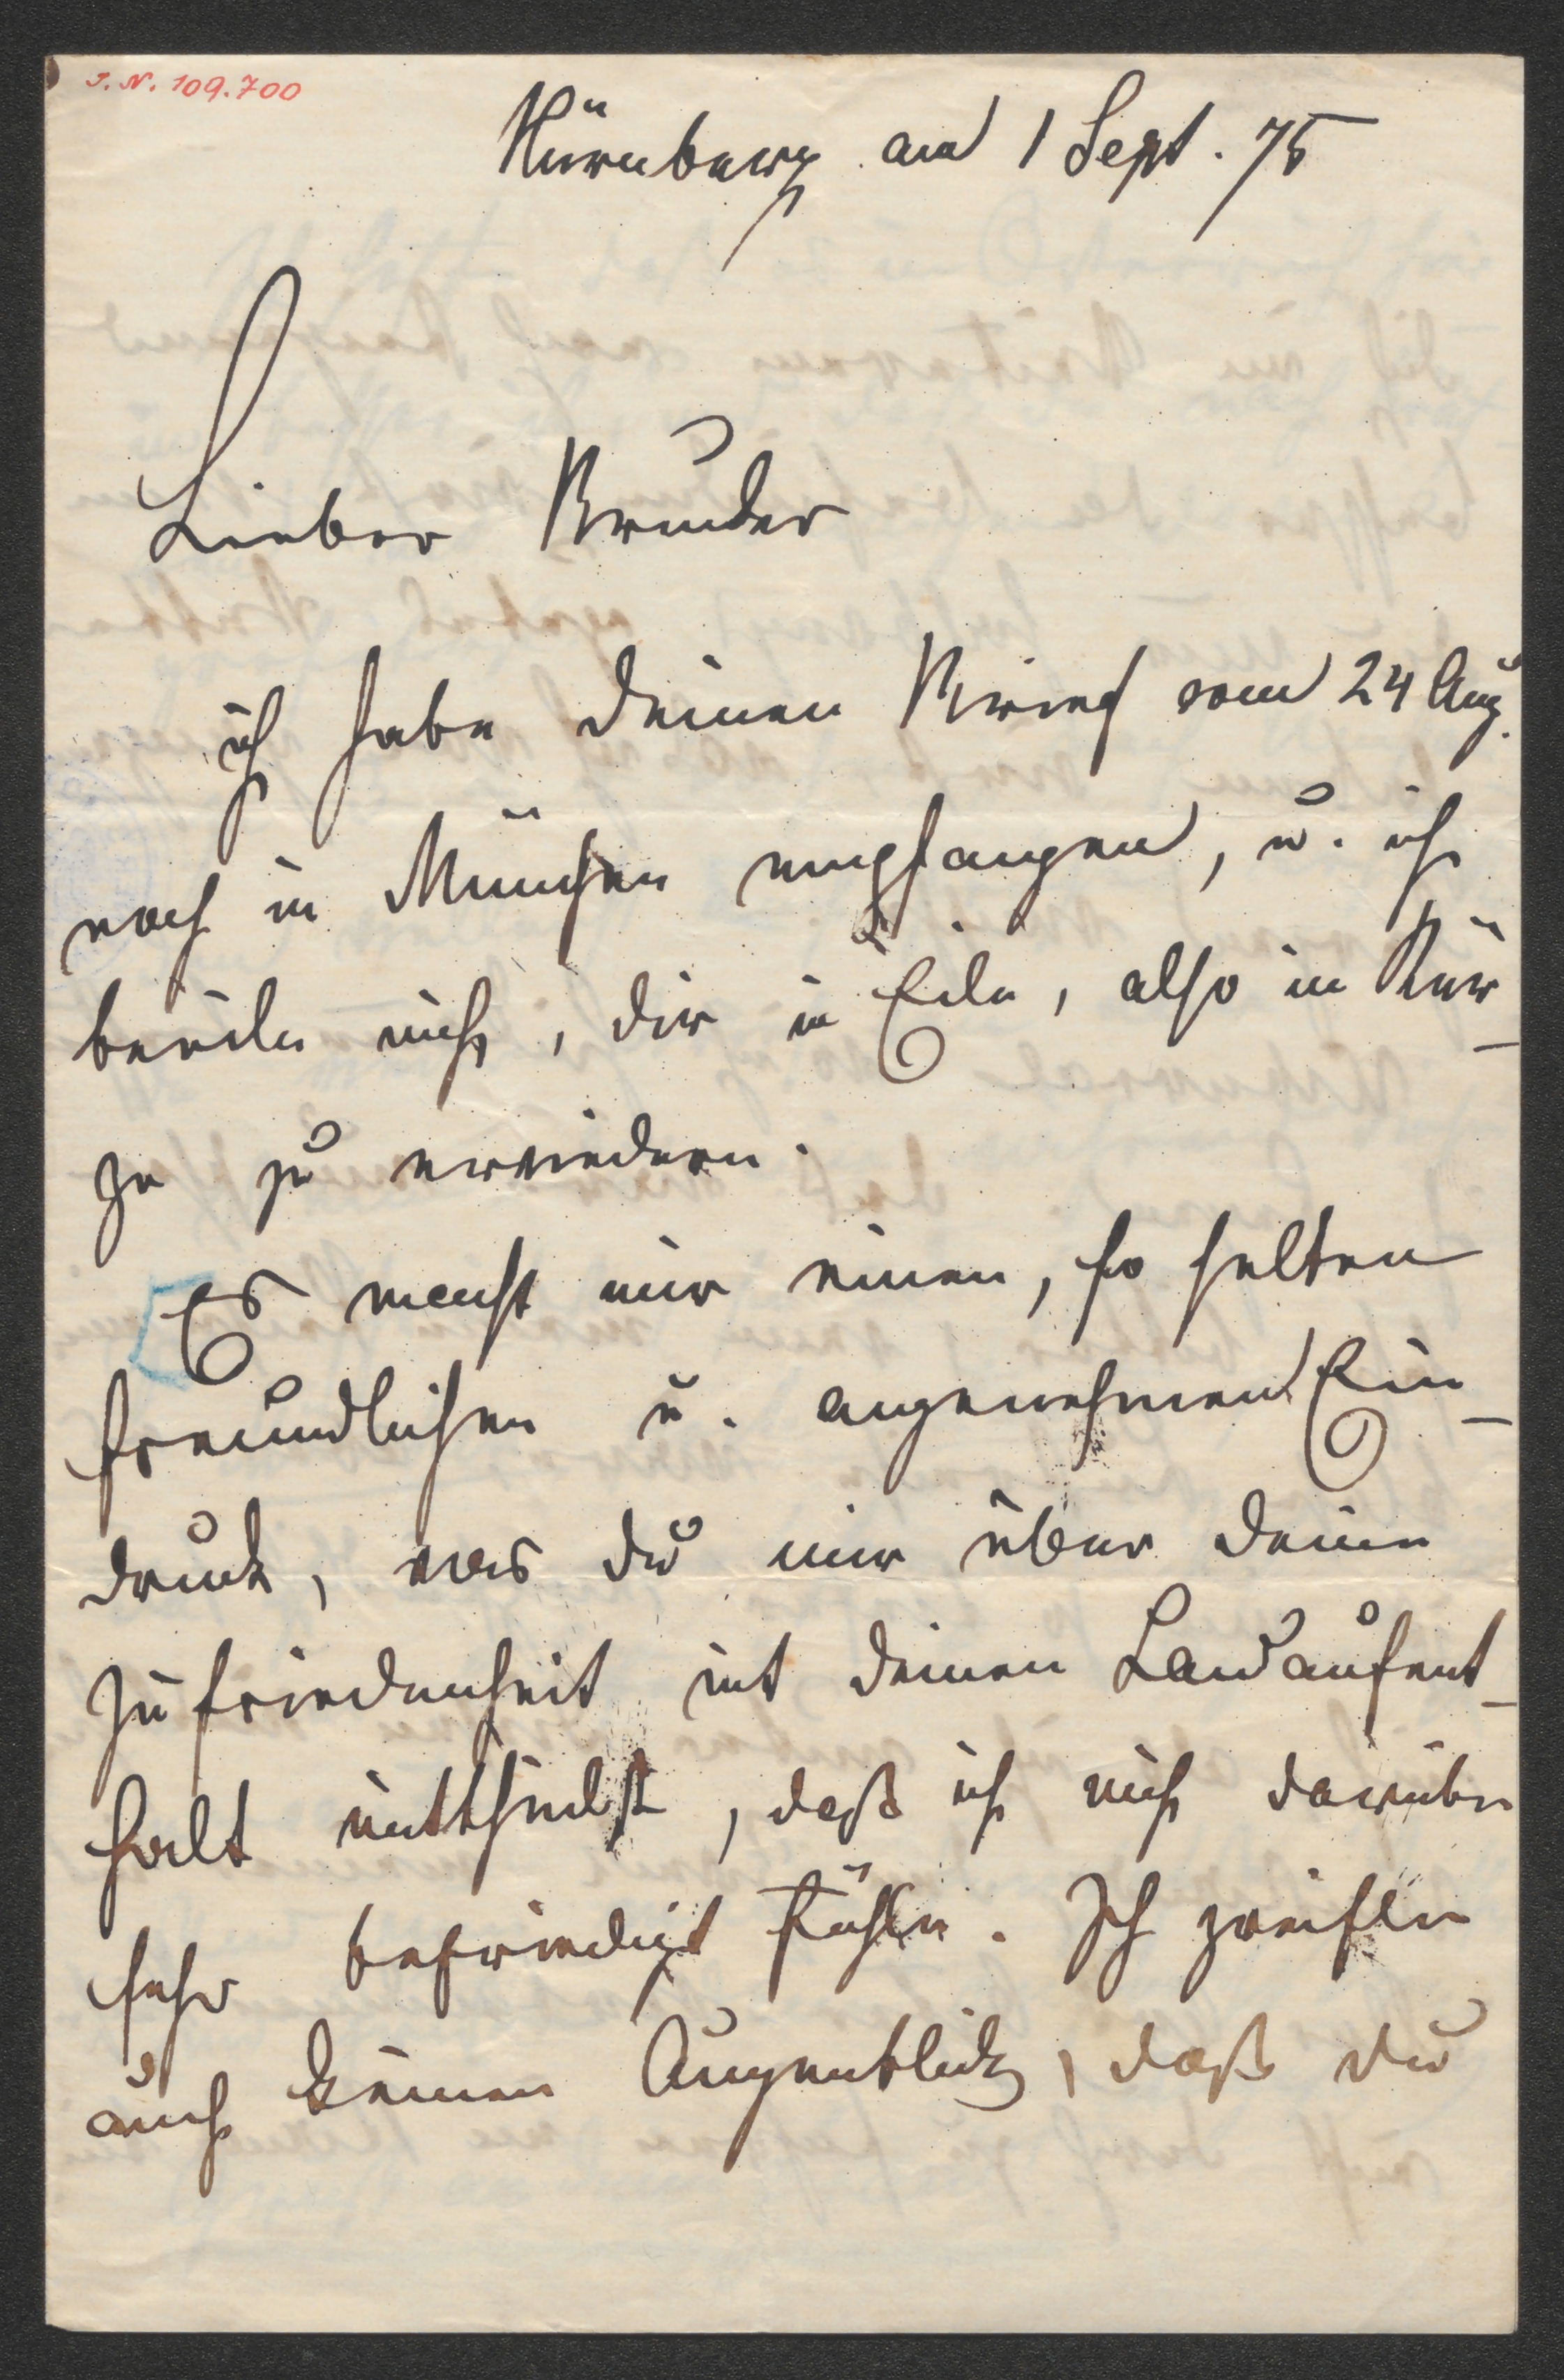 I. N. 109.700
Nürnberg am 1 Sept. 75
Lieber Bruder
ich habe deinen Brief vom 24 Aug.
noch in München empfangen, u. ich
beeile mich, dir in Eile, also in Kür-
ze zu erwiedern.
Es macht mir einen, so selten
freundlichen u. angenehmen Ein-
druck, was du mir über deine
Zufriedenheit mit deinen Landaufent-
halt mittheilst, daß ich mich darüber
sehr befriedigt fühle. Ich zweifle
auch keinen Augenblick, daß du